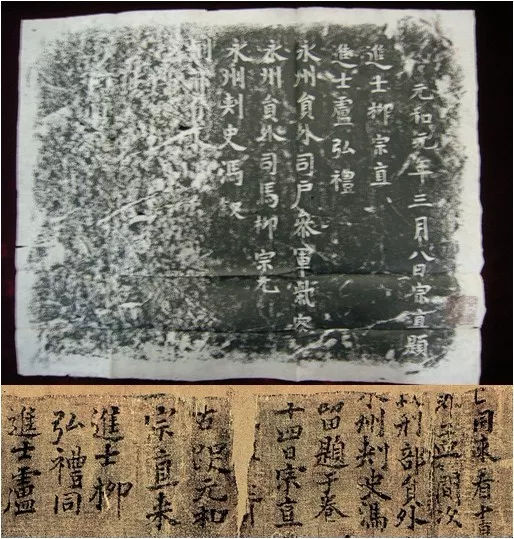 元和元年三月八日宗直題
進士柳宗直
進士盧弘禮
永州員外司戶參軍
永州員外司馬柳宗元
永州刺史馮
同來看
間次
刑部員外
永州刺史馮
留題于卷
十四日宗直
元和
宗直来
進士柳
弘禮同
進士盧